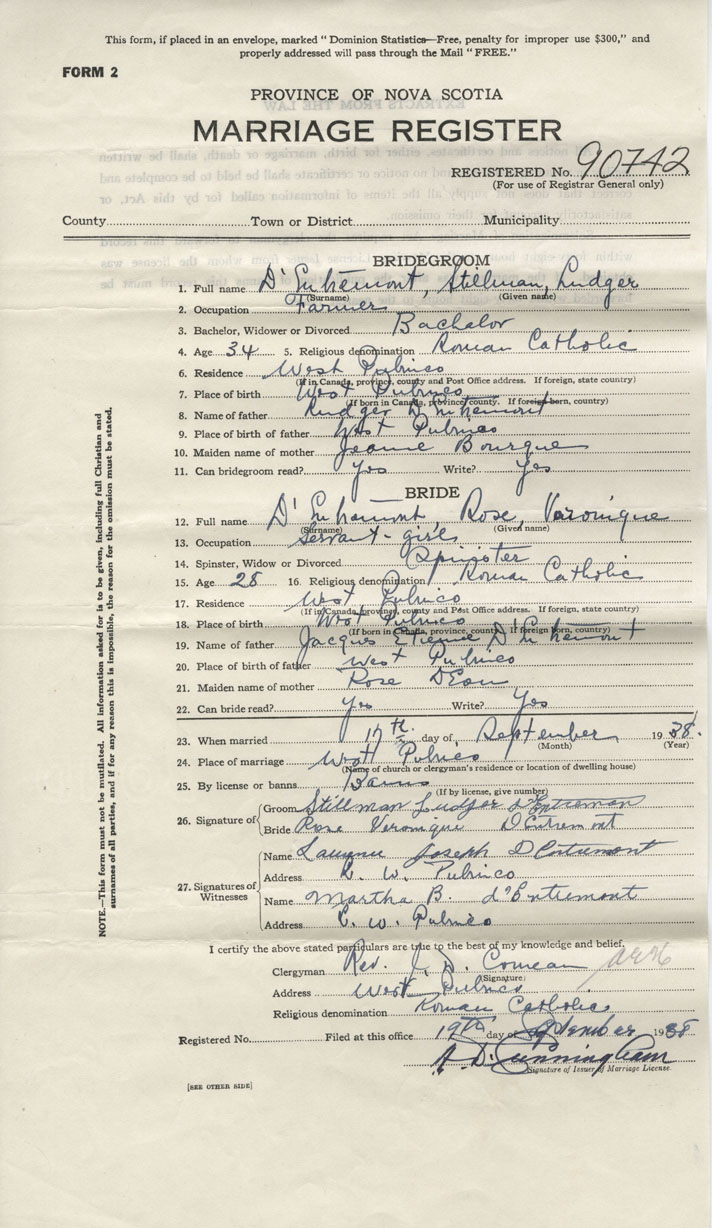 This form, if placed in an envelope, marked "Dominion Statistics—Free, penalty for improper use $300," and
properly addressed will pass through the Mail "FREE."
FORM 2
PROVINCE OF NOVA SCOTIA
MARRIAGE REGISTER
REGISTERED No. 90742
(For use of Registrar General only)
County Town or District Municipality
BRIDEGROOM
1. Full name D'Entremont, Stillman, Ludger
(Surname) (Given name)
2. Occupation Farmer
3. Bachelor, Widower or Divorced Bachelor
4. Age 34 5. Religious denomination Roman Catholic
6. Residence West Pubnico
(If in Canada, province, county and Post Office address. If foreign, state country)
7. Place of birth West Pubnico
(If born in Canada, province, county. If foreign born, country)
8. Name of father Ludger D'Entremont
9. Place of birth of father West Pubnico
10. Maiden name of mother Jeanne Bourque
11. Can bridegroom read? Yes Write? Yes
BRIDE
12. Full name D'Entremont, Rose, Veronique
(Surname) (Given name)
13. Occupation Servant-girl
14. Spinster, Widow or Divorced Spinster
15. Age 28 16. Religious denomination Roman Catholic
17. Residence West Pubnico
(If in Canada, province, county and Post Office address. If foreign, state country)
18. Place of birth West Pubnico
(If born in Canada, province, county, If foreign born, country)
19. Name of father Jacques Etienne D'Entremont
20. Place of birth of father West Pubnico
21. Maiden name of mother Rose D'Eon
22. Can bride read? Yes Write? Yes
23. When married 17th day of September 1938.
(Month) (Year)
24. Place of marriage West Pubnico
(Name of church or clergyman's residence or location of dwelling house)
25. By license or banns Banns
(If by license, give number)
26. Signature of
Groom Stillman Ludger d'Entremon
Bride Rose Veronique D'Entremont
27. Signatures of Witnesses
Name Joseph D'Entremont
Address W. Pubnico
Name Martha B. d'Entremont
Address W. Pubnico
I certify the above stated particulars are true to the best of my knowledge and belief.
Clergyman Rev. J. D. Comeau
(Signature)
Address West Pubnico
Religious denomination Roman Catholic
Registered No. Filed at this office 19th day of September 1938
A. D. Cunningham
Signature of Issuer of Marriage License
[SEE OTHER SIDE]
NOTE.—This form must not be mutilated. All information asked for is to be given, including full Christian and
surnames of all parties, and if for any reason this is impossible, the reason for the omission must be stated.